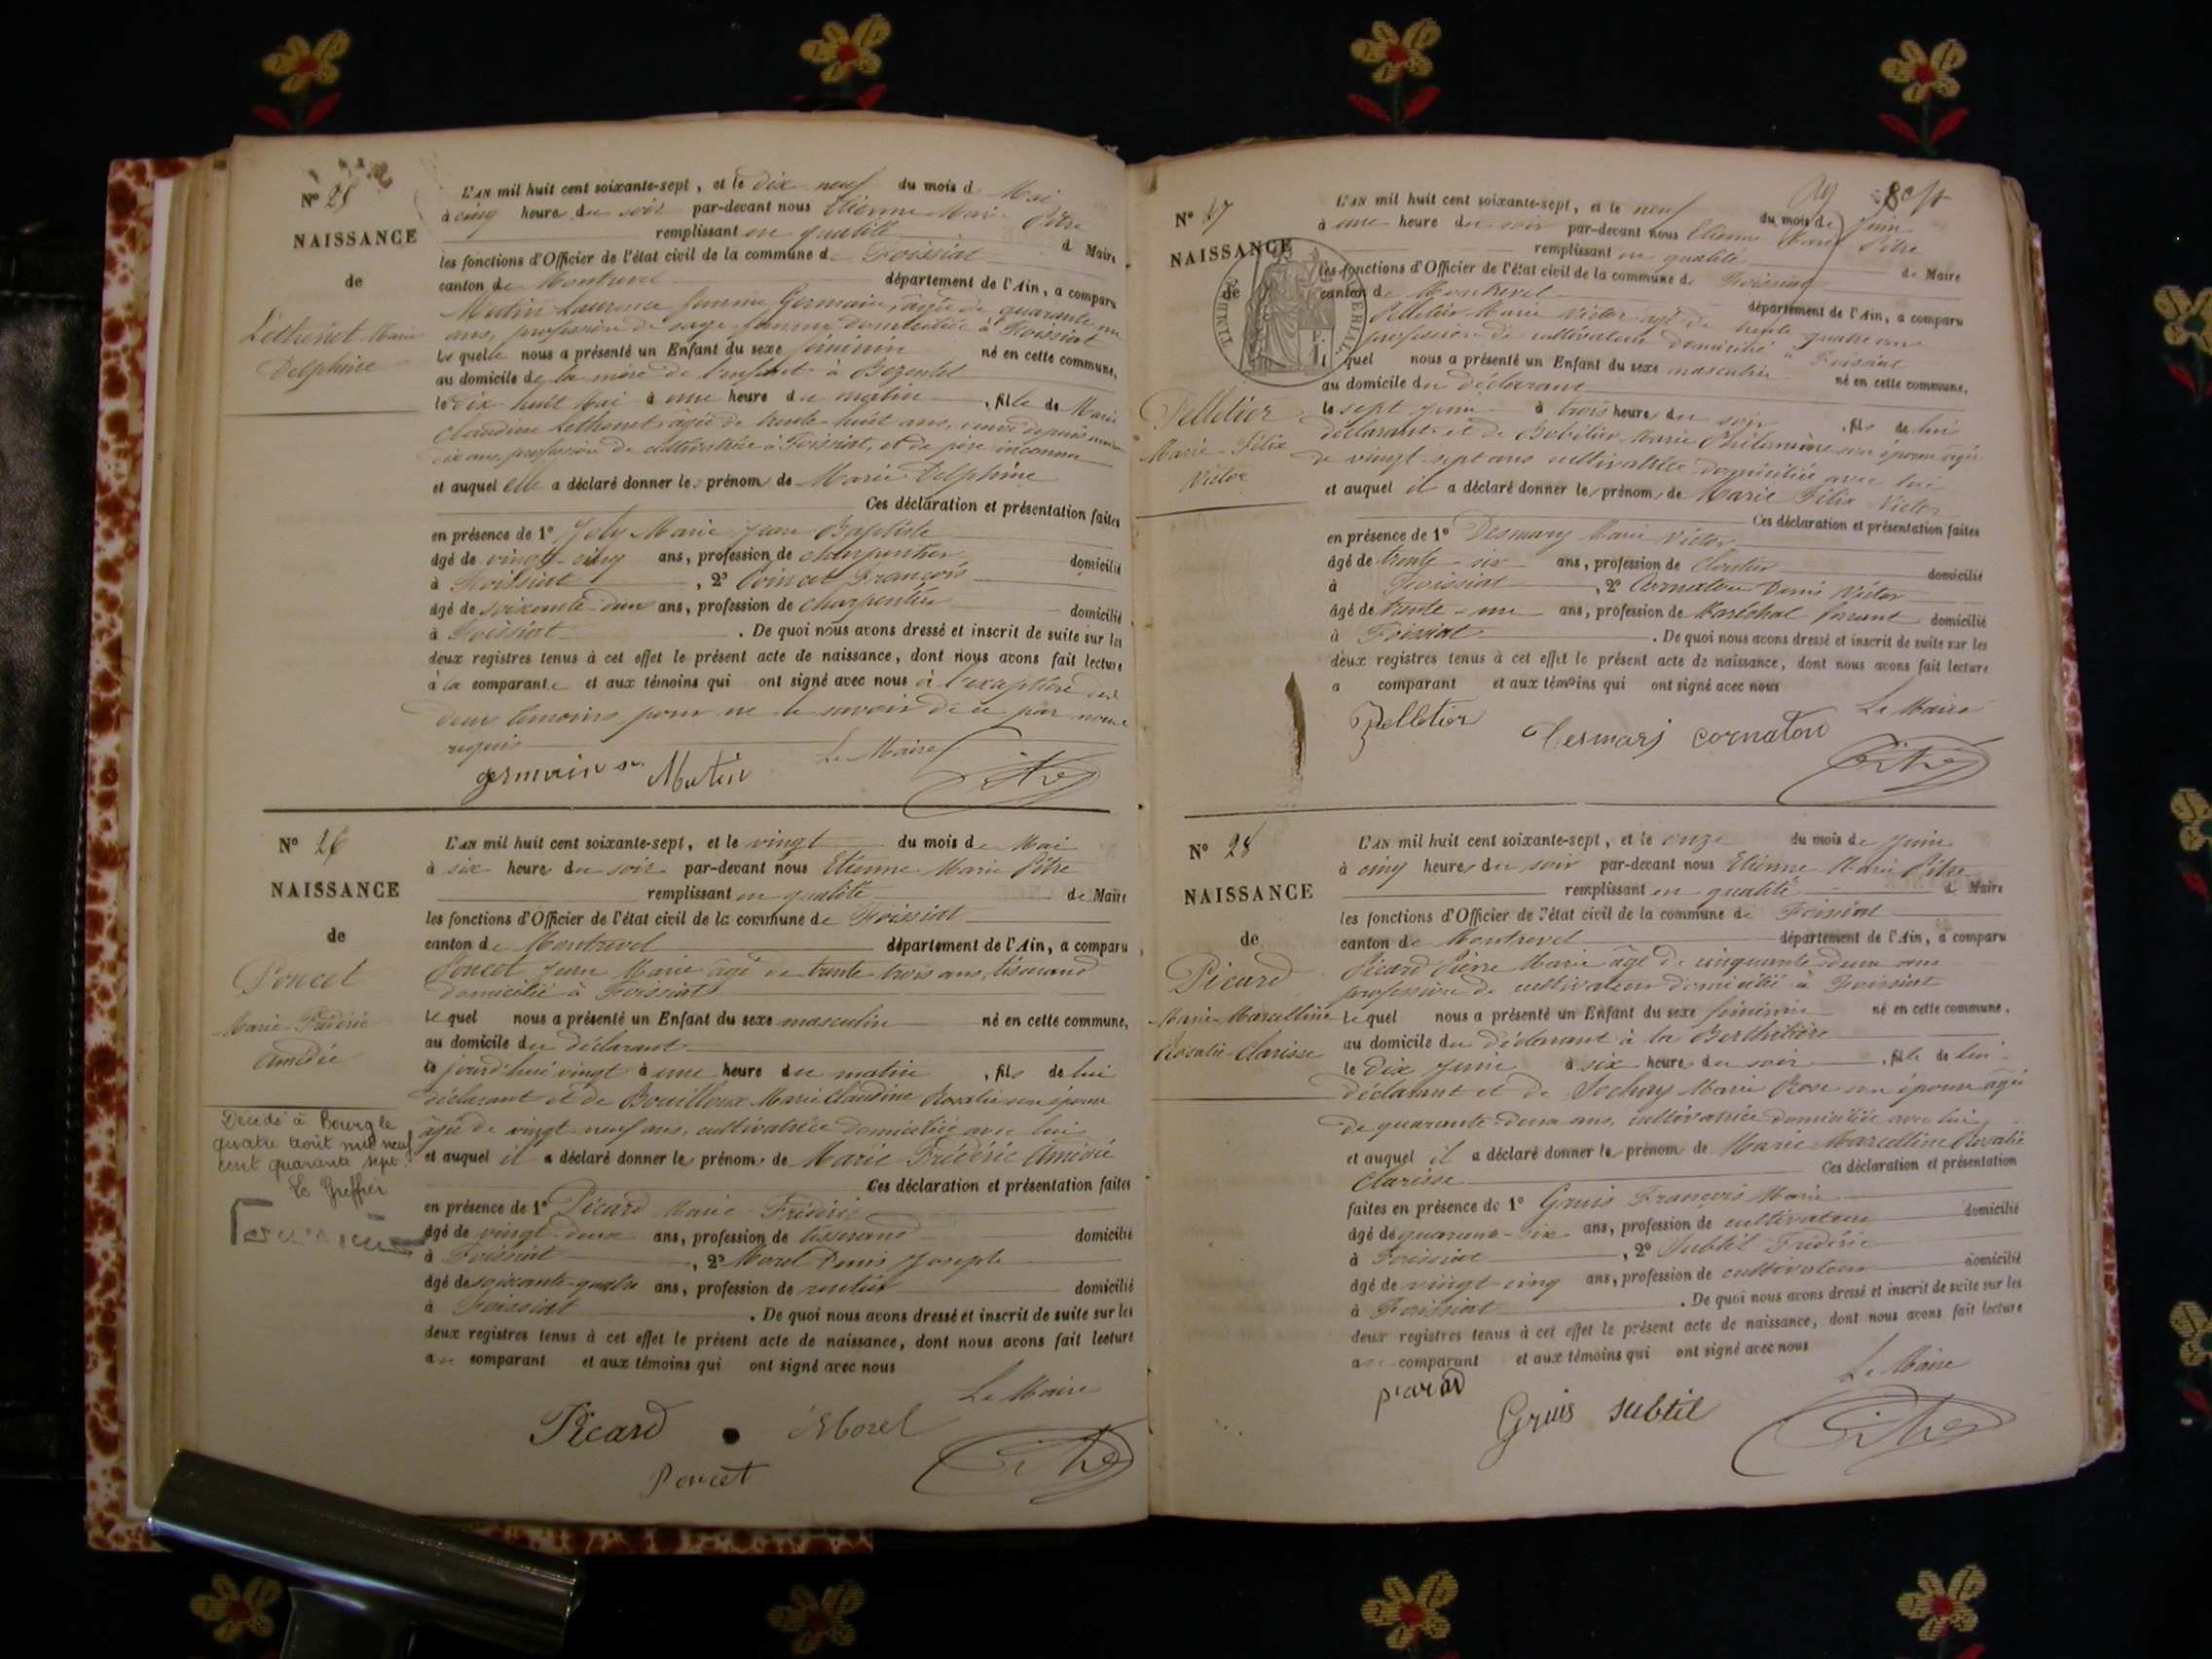 N° 25
NAISSANCE
de
Léthenot Marie
Delphine
L'AN mil huit cent soixante-sept, et le dix neuf du mois d Mai
à cinq heures du soir par-devant nous Etienne Marie Pitre
remplissant en qualité d Maire
les fonctions d'Officier de l'état civil de la commune d Foissiat
canton de Montrevel département de l'Ain, a comparu
Mutin Laurence femme Germain, âgée de quarante
ans, profession de sage-femme domiciliée à Foissiat
la quelle nous a présenté un Enfant du sexe féminin né en cette commune,
au domicile de la mère de l'enfant à
le dix huit Mai à une heure du matin, fille de Marie
Claudine Lethenet âgée de trente-huit ans, veuve depuis
dix ans, profession de cultivatrice à Foissiat, et de père inconnu
et auquel elle a déclaré donner les prénoms de Marie Delphine
Ces déclaration et présentation faites
en présence de 1° Joly Marie Jean Baptiste
âgé de vingt-cinq ans, profession de charpentier domicilié
à Foissiat, 2° Poincet François
âgé de soixante-deux ans, profession de charpentier domicilié
à Foissiat. De quoi nous avons dressé et inscrit de suite sur les
deux registres tenus à cet effet le présent acte de naissance, dont nous avons fait lecture
à la comparante et aux témoins qui ont signé avec nous à l'exception des
deux témoins pour ne le savoir de ce par nous
requis
Le Maire
germain née Mutin Pitre
N° 26
NAISSANCE
de
Poncet
Marie Frédéric
Amédée
Décédé à Bourg le
quatre août mil neuf
cent quarante sept
Le Greffier
L'AN mil huit cent soixante-sept, et le vingt du mois de Mai
à six heures du soir par-devant nous Etienne Marie Pitre
remplissant en qualité de Maire
les fonctions d'Officier de l'état civil de la commune de Foissiat
canton de Montrevel département de l'Ain, a comparu
Poncet Jean Marie âgé de trente-trois ans, tisserand
domicilié à Foissiat
le quel nous a présenté un Enfant du sexe masculin né en cette commune,
au domicile du déclarant
le jourd'hui vingt à une heure du matin, fils de lui
déclarant et de Bouilloux Marie Claudine Rosalie son épouse
âgée de vingt-neuf ans, cultivatrice domiciliée avec lui
et auquel il a déclaré donner les prénoms de Marie Frédéric Amédée
Ces déclaration et présentation faites
en présence de 1° Picard Marie Frédéric
âgé de vingt-deux ans, profession de tisserand domicilié
à Foissiat, 2° Morel Denis Joseph
âgé de soixante-quatre ans, profession de rentier domicilié
à Foissiat. De quoi nous avons dressé et inscrit de suite sur les
deux registres tenus à cet effet le présent acte de naissance, dont nous avons fait lecture
au comparant et aux témoins qui ont signé avec nous
Le Maire
Picard Morel
Poncet Pitre
N° 27
NAISSANCE
de
Pelletier
Marie-Félix
Victor
TIMBRE IMPERIAL
L'AN mil huit cent soixante-sept, et le neuf du mois de Juin
à une heure du soir par-devant nous Etienne Marie Pitre
remplissant en qualité de Maire
les fonctions d'Officier de l'état civil de la commune d Foissiat
canton de Montrevel département de l'Ain, a comparu
Pelletier Marie Victor âgé de trente quatre ans
profession de cultivateur domicilié à Foissiat
quel nous a présenté un Enfant du sexe masculin né en cette commune,
au domicile du déclarant
le sept Juin à trois heures du soir, fils de lui
déclarant et de Bobillier Marie Philomène son épouse âgée
de vingt-sept ans cultivatrice domiciliée avec lui
et auquel il a déclaré donner les prénoms de Marie Félix Victor
Ces déclaration et présentation faites
en présence de 1° Desmary Marie Victor
âgé de trente-six ans, profession de cloutier domicilié
à Foissiat, 2° Cornaton Denis Victor
âgé de trente-une ans, profession de Maréchal ferrant domicilié
à Foissiat. De quoi nous avons dressé et inscrit de suite sur les
deux registres tenus à cet effet le présent acte de naissance, dont nous avons fait lecture
a comparant et aux témoins qui ont signé avec nous
Le Maire
Pelletier Desmarj cornaton
Pitre
N° 28
NAISSANCE
de
Picard
Marie-Marcelline
Rosalie-Clarisse
L'AN mil huit cent soixante-sept, et le onze du mois de Juin
à cinq heures du soir par-devant nous Etienne Marie Pitre
remplissant en qualité d Maire
les fonctions d'Officier de l'état civil de la commune de Foissiat
canton de Montrevel département de l'Ain, a comparu
Picard Pierre Marie âgé de cinquante-deux ans
profession de cultivateur domicilié à Foissiat
le quel nous a présenté un Enfant du sexe féminin né en cette commune,
au domicile du déclarant à la Berthilière
le dix Juin à six heures du soir, fille de lui
déclarant et de Sochay Marie Rose son épouse âgée
de quarante-deux ans, cultivatrice domiciliée avec lui
et auquel il a déclaré donner les prénoms de Marie Marcelline Rosalie
Clarisse Ces déclaration et présentation
faites en présence de 1° Gruis François Marie
âgé de quarante-six ans, profession de cultivateur domicilié
à Foissiat, 2° Subtil Frédéric
âgé de vingt-cinq ans, profession de cultivateur domicilié
à Foissiat. De quoi nous avons dressé et inscrit de suite sur les
deux registres tenus à cet effet le présent acte de naissance, dont nous avons fait lecture
au comparant et aux témoins qui ont signé avec nous
Le Maire
picard
Gruis subtil Pitre